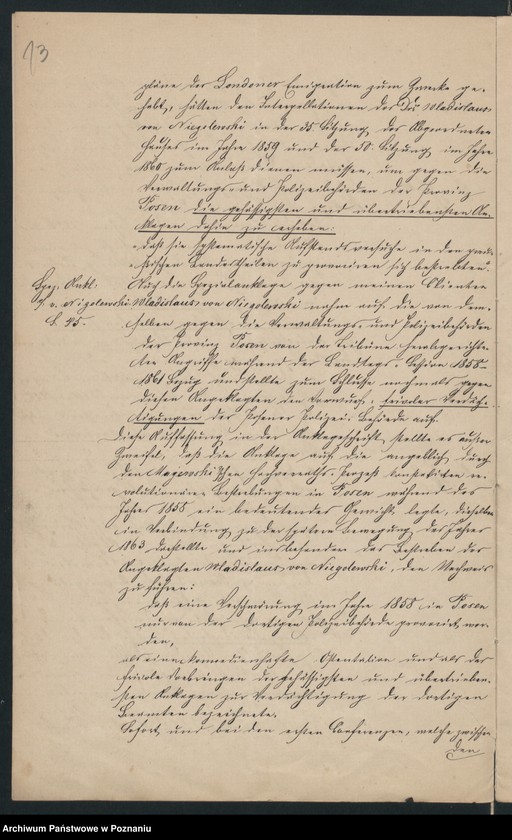 13
pläne der Londoner Emigration zum Zwecke ge-
habt, hätten den Interpellationen des Drs. Wladislaus
von Niegolewski in der 35 Sitzung des Abgeordneten
Hauses im Jahre 1859 und der 50. Sitzung im Jahre
1860 zum Anlaß dienen müssen, um gegen die
Verwaltungs- und Polizeibehörden der Provinz
Posen die gehässigsten und übertriebensten An-
klagen dahin zu erheben:
"daß sie systematische Aufstandsversuche in den preu-
ßischen Landestheilen zu provociren sich bestrebten."
Spez. Ankl.
v. Niegolewski
S. 45.
Auch die Spezialanklage gegen meinen Clienten
Wladislaus von Niegolewski nahm auf die von dem-
selben gegen die Verwaltungs- und Polizeibehörden
der Provinz Posen von der Tribüne herabgerichte-
ten Angriffe während der Landtags-Session 1858-
1861 Bezug und stellte zum Schlusse nochmals gegen
diesen Angeklagten den Vorwurf, frivoler Verdäch-
tigungen der Posener Polizei-Behörde auf.
Diese Auffassung in der Anklageschrift stellte es außer
Zweifel, daß die Anklage auf die angeblich durch
den Hochverraths-Prozeß re-
volutionären Bestrebungen in Posen während des
Jahres 1858 ein bedeutendes Gewicht legte, dieselben
in Verbindung zu der späteren Bewegung des Jahres
1863 darstellte und insbesondere das Bestreben des
Angeklagten Wladislaus von Niegolewski, den Nachweis
zu führen:
daß eine Verschwörung im Jahre 1858 in Posen
nur von der dortigen Polizeibehörde provocirt wor-
den,
als eine Ostentation und als das
frivole Vorbringen der gehässigsten und übertrieben-
sten Anklagen zur Verdächtigung der dortigen
Beamten bezeichnete.
Sofort und bei den ersten Conferenzen, welche zwischen
den
Archiwum Państwowe w Poznaniu